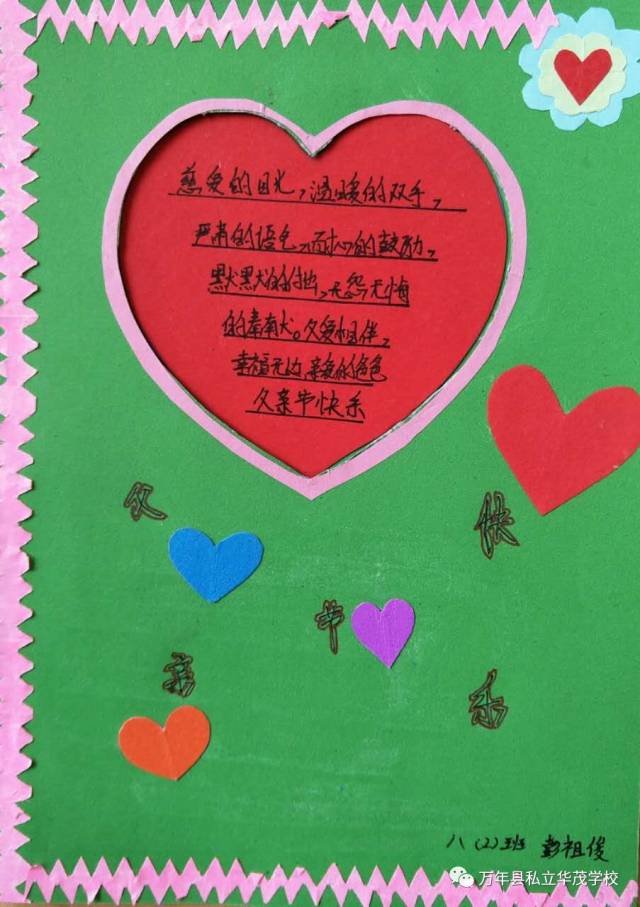 慈爱的目光,温暖的双手,
严肃的语气,耐心的鼓励,
默默的付出,无怨无悔
的奉献。父爱相伴,
幸福无边,亲爱的爸爸
父亲节快乐
父
亲
节
快
乐
八(2)班 彭祖俊
万年县私立华茂学校